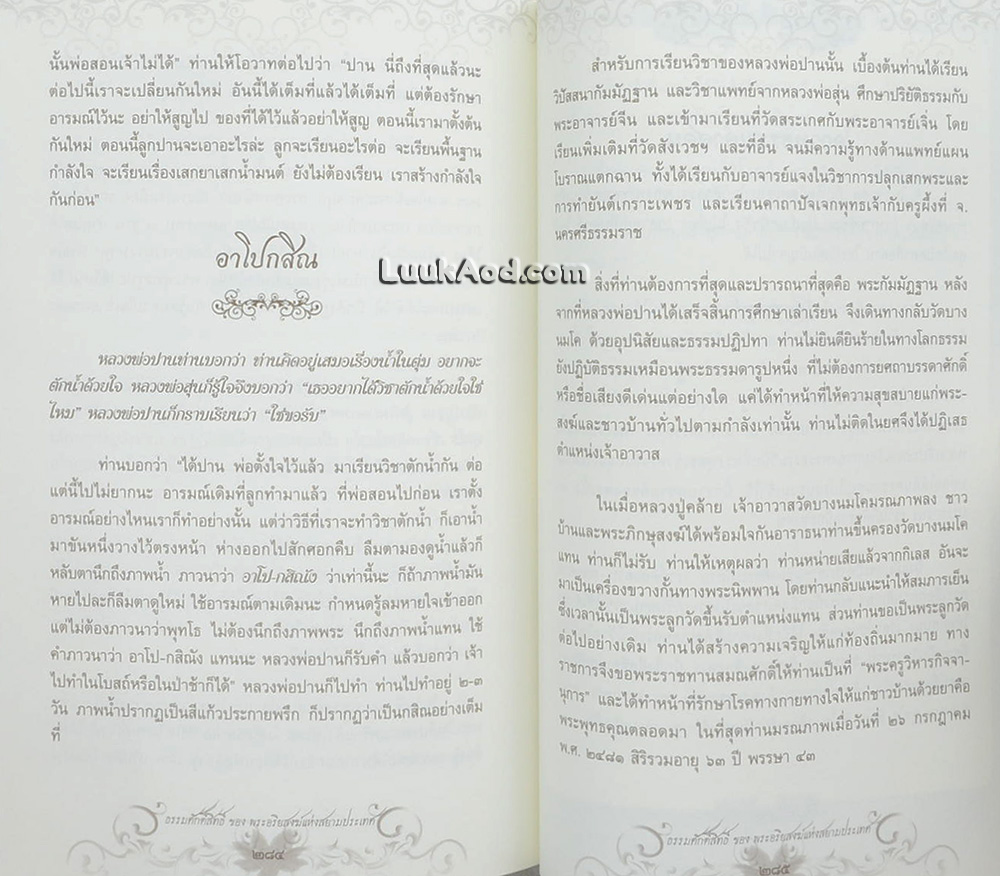 นั้นพ่อสอนเจ้าไม่ได้" ท่านให้โอวาทต่อไปว่า "ปาน นี่ถึงที่สุดแล้วนะ
ต่อไปนี้เราจะเปลี่ยนกันใหม่ อันนี้ได้เต็มที่แล้วได้เต็มที่ แต่ต้องรักษา
อารมณ์ไว้นะ อย่าให้สูญไป ของที่ได้ไว้แล้วอย่าให้สูญ ตอนนี้เรามาตั้งต้น
กันใหม่ ตอนนี้ลูกปานจะเอาอะไรล่ะ ลูกจะเรียนอะไรต่อ จะเรียนพื้นฐาน
กำลังใจ จะเรียนเรื่องเสกยาเสกน้ำมนต์ ยังไม่ต้องเรียน เราสร้างกำลังใจ
กันก่อน"
อาโปกสิณ
LuukAod.com
หลวงพ่อปานท่านบอกว่า ท่านคิดอยู่เสมอเรื่องน้ำในตุ่ม อยากจะ
ตักน้ำด้วยใจ หลวงพ่อสุ่นก็รู้ใจจึงบอกว่า "เธออยากได้วิชาตักน้ำด้วยใจใช่
ไหม" หลวงพ่อปานก็กราบเรียนว่า "ใช่ขอรับ"
ท่านบอกว่า "ได้ปาน พ่อตั้งใจไว้แล้ว มาเรียนวิชาตักน้ำกัน ต่อ
แต่นี้ไปไม่ยากนะ อารมณ์เดิมที่ลูกทำมาแล้ว ที่พ่อสอนไปก่อน เราตั้ง
อารมณ์อย่างไหนเราก็ทำอย่างนั้น แต่ว่าวิธีที่เราจะทำวิชาตักน้ำ ก็เอาน้ำ
มาขันหนึ่งวางไว้ตรงหน้า ห่างออกไปสักศอกคืบ ลืมตามองดูน้ำแล้วก็
หลับตานึกถึงภาพน้ำ ภาวนาว่า อาโป-กสิณัง ว่าเท่านี้นะ ก็ถ้าภาพน้ำมัน
หายไปละก็ลืมตาดูใหม่ ใช้อารมณ์ตามเดิมนะ กำหนดรู้ลมหายใจเข้าออก
แต่ไม่ต้องภาวนาว่าพุทโธ ไม่ต้องนึกถึงภาพพระ นึกถึงภาพน้ำแทน ใช้
คำภาวนาว่า อาโป-กสิณัง แทนนะ หลวงพ่อปานก็รับคำ แล้วบอกว่า เจ้า
ไปทำในโบสถ์หรือในป่าช้าก็ได้" หลวงพ่อปานก็ไปทำ ท่านไปทำอยู่ ๒-๓
วัน ภาพน้ำปรากฏเป็นสีแก้วประกายพรึก ก็ปรากฏว่าเป็นกสิณอย่างเต็ม
ที่
ธรรมศักดิ์สิทธิ์ ของ พระอริยสงฆ์แห่งสยามประเทศ
๒๘๔
สำหรับการเรียนวิชาของหลวงพ่อปานนั้น เบื้องต้นท่านได้เรียน
วิปัสสนากัมมัฏฐาน และวิชาแพทย์จากหลวงพ่อสุ่น ศึกษาปริยัติธรรมกับ
พระอาจารย์จีน และเข้ามาเรียนที่วัดสระเกศกับพระอาจารย์เจิ่น โดย
เรียนเพิ่มเติมที่วัดสังเวชฯ และที่อื่น จนมีความรู้ทางด้านแพทย์แผน
โบราณแตกฉาน ทั้งได้เรียนกับอาจารย์แจงในวิชาการปลุกเสกพระและ
การทำยันต์เกราะเพชร และเรียนคาถาปัจเจกพุทธเจ้ากับครูผึ้งที่ จ.
นครศรีธรรมราช
สิ่งที่ท่านต้องการที่สุดและปรารถนาที่สุดคือ พระกัมมัฏฐาน หลัง
จากที่หลวงพ่อปานได้เสร็จสิ้นการศึกษาเล่าเรียน จึงเดินทางกลับวัดบาง
นมโค ด้วยอุปนิสัยและธรรมปฏิปทา ท่านไม่ยินดียินร้ายในทางโลกธรรม
ยังปฏิบัติธรรมเหมือนพระธรรมดารูปหนึ่ง ที่ไม่ต้องการยศถาบรรดาศักดิ์
หรือชื่อเสียงดีเด่นแต่อย่างใด แค่ได้ทำหน้าที่ให้ความสุขสบายแก่พระ-
สงฆ์และชาวบ้านทั่วไปตามกำลังเท่านั้น ท่านไม่ติดในยศจึงได้ปฏิเสธ
ตำแหน่งเจ้าอาวาส
ในเมื่อหลวงปู่คล้าย เจ้าอาวาสวัดบางนมโคมรณภาพลง ชาว
บ้านและพระภิกษุสงฆ์ได้พร้อมใจกันอาราธนาท่านขึ้นครองวัดบางนมโค
แทน ท่านก็ไม่รับ ท่านให้เหตุผลว่า ท่านหน่ายเสียแล้วจากกิเลส อันจะ
มาเป็นเครื่องขวางกั้นทางพระนิพพาน โดยท่านกลับแนะนำให้สมภารเย็น
ซึ่งเวลานั้นเป็นพระลูกวัดขึ้นรับตำแหน่งแทน ส่วนท่านขอเป็นพระลูกวัด
ต่อไปอย่างเดิม ท่านได้สร้างความเจริญให้แก่ท้องถิ่นมากมาย ทาง
ราชการจึงขอพระราชทานสมณศักดิ์ให้ท่านเป็นที่ "พระครูวิหารกิจจา-
นุการ" และได้ทำหน้าที่รักษาโรคทางกายทางใจให้แก่ชาวบ้านด้วยยาคือ
พระพุทธคุณตลอดมา ในที่สุดท่านมรณภาพเมื่อวันที่ ๒๖ กรกฎาคม
พ.ศ. ๒๔๘๑ สิริรวมอายุ ๖๓ ปี พรรษา ๔๓
ธรรมศักดิ์สิทธิ์ ของ พระอริยสงฆ์แห่งสยามประเทศ
๒๘๕